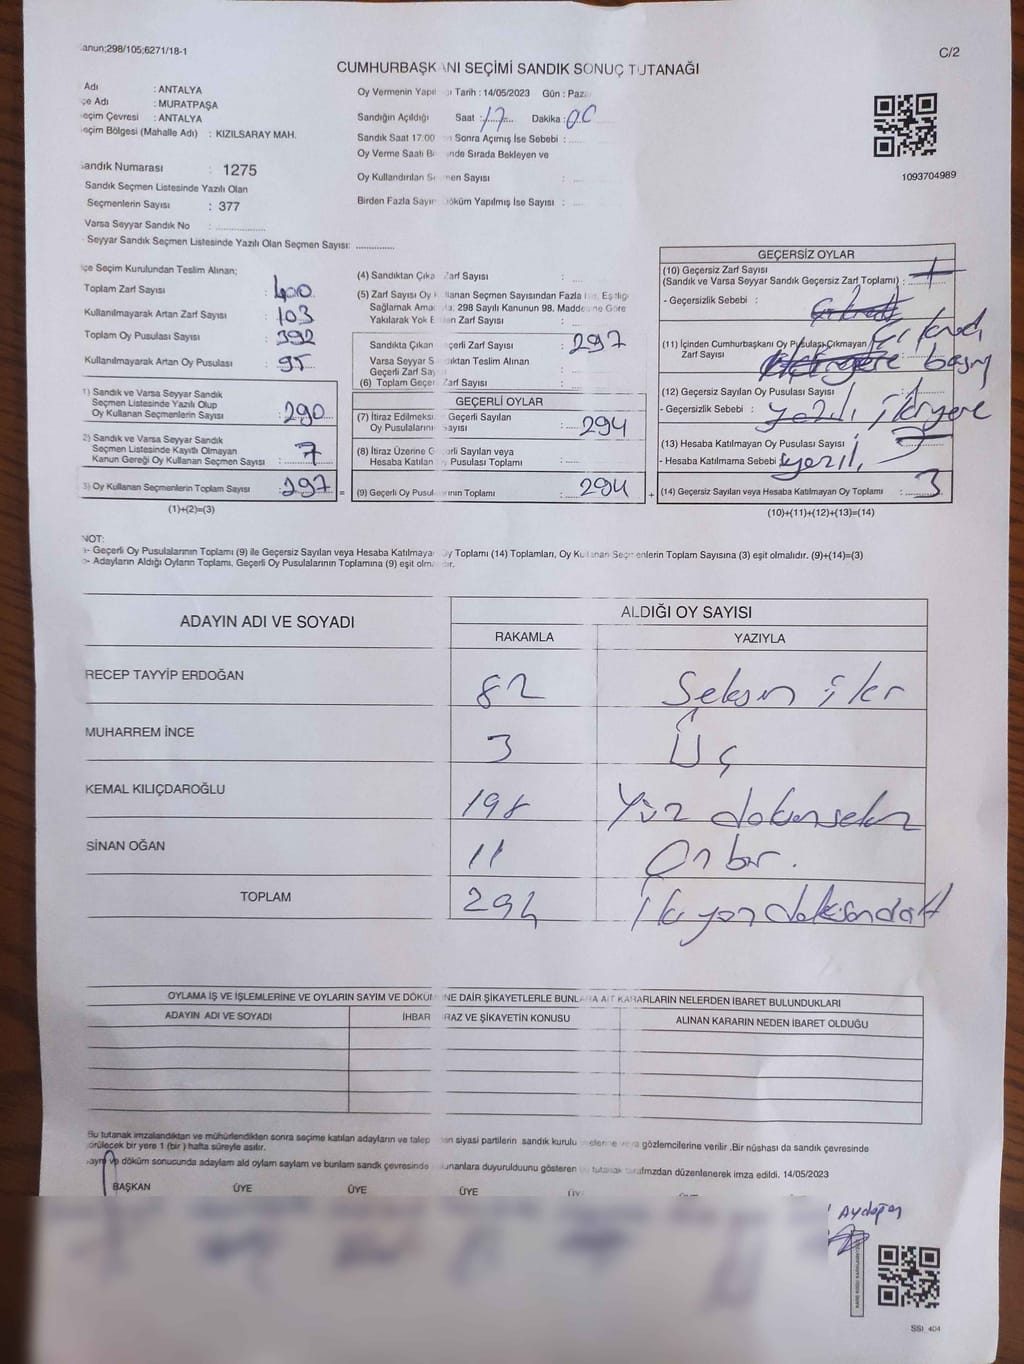 anun;298/105;6271/18-1
C/2
CUMHURBAŞK NI SEÇİMİ SANDIK SONUÇ TUTANAĞI
Adı : ANTALYA
çe Adı : MURATPAŞA
eçim Çevresi : ANTALYA
eçim Bölgesi (Mahalle Adı) : KIZILSARAY MAH.
andık Numarası : 1275
Sandık Seçmen Listesinde Yazılı Olan
Seçmenlerin Sayısı : 377
Varsa Seyyar Sandık No : ...............
Seyyar Sandık Seçmen Listesinde Yazılı Olan Seçmen Sayısı: ............
Oy Vermenin Yapıl ı Tarih : 14/05/2023 Gün : Paza
Sandığın Açıldığı Saat : 17 Dakika : 00
Sandık Saat 17:00 n Sonra Açımış İse Sebebi :
Oy Verme Saati B nde Sırada Bekleyen ve
Oy Kullandırılan Se men Sayısı :
Birden Fazla Sayım öküm Yapılmış İse Sayısı :
1093704989
çe Seçim Kurulundan Teslim Alınan;
Toplam Zarf Sayısı : 400
Kullanılmayarak Artan Zarf Sayısı : 103
Toplam Oy Pusulası Sayısı : 392
Kullanılmayarak Artan Oy Pusulası : 95
1) Sandık ve Varsa Seyyar Sandık
Seçmen Listesinde Yazılı Olup
Oy Kullanan Seçmenlerin Sayısı : 290
2) Sandık ve Varsa Seyyar Sandık
Seçmen Listesinde Kayıtlı Olmayan
Kanun Gereği Oy Kullanan Seçmen Sayısı : 7
3) Oy Kullanan Seçmenlerin Toplam Sayısı : 297 =
(1)+(2)=(3)
(4) Sandıktan Çıka Zarf Sayısı :
(5) Zarf Sayısı Oy K llanan Seçmen Sayısından Fazla Eşitliği
Sağlamak Ama la, 298 Sayılı Kanunun 98. Maddesine Göre
Yakılarak Yok E en Zarf Sayısı :
Sandıkta Çıkan eçerli Zarf Sayısı : 297
Varsa Seyyar S dıktan Teslim Alınan
Geçerli Zarf Say :
(6) Toplam Geçer Zarf Sayısı :
GEÇERLİ OYLAR
(7) İtiraz Edilmeksi Geçerli Sayılan
Oy Pusulaların ayısı : 294
(8) İtiraz Üzerine G erli Sayılan veya
Hesaba Katılan y Pusulası Toplamı :
(9) Geçerli Oy Pusul rının Toplamı : 294 +
GEÇERSİZ OYLAR
(10) Geçersiz Zarf Sayısı
(Sandık ve Varsa Seyyar Sandık Geçersiz Zarf Toplamı) :
- Geçersizlik Sebebi :
(11) İçinden Cumhurbaşkanı Oy Pusulası Çıkmayan
Zarf Sayısı :
(12) Geçersiz Sayılan Oy Pusulası Sayısı :
- Geçersizlik Sebebi : yazılı, iki yere
(13) Hesaba Katılmayan Oy Pusulası Sayısı :
- Hesaba Katılmama Sebebi :
(14) Geçersiz Sayılan veya Hesaba Katılmayan Oy Toplamı : 3
(10)+(11)+(12)+(13)=(14)
NOT:
- Geçerli Oy Pusulalarının Toplamı (9) ile Geçersiz Sayılan veya Hesaba Katılmaya y Toplamı (14) Toplamları, Oy Kullanan Seçmenlerin Toplam Sayısına (3) eşit olmalıdır. (9)+(14)=(3)
- Adayların Aldığı Oyların Toplamı, Geçerli Oy Pusulalarının Toplamına (9) eşit olm dır.
ADAYIN ADI VE SOYADI ALDIĞI OY SAYISI
RAKAMLA YAZIYLA
RECEP TAYYİP ERDOĞAN 82 Seksen iki
MUHARREM İNCE 3 Üç
KEMAL KILIÇDAROĞLU 198 Yüz doksan sekiz
SİNAN OĞAN 11 On bir.
TOPLAM 294 iki yüz doksan dört
OYLAMA İŞ VE İŞLEMLERİNE VE OYLARIN SAYIM VE DÖKÜM NE DAİR ŞİKAYETLERLE BUNLARA AİT KARARLARIN NELERDEN İBARET BULUNDUKLARI
ADAYIN ADI VE SOYADI İHBAR RAZ VE ŞİKAYETİN KONUSU ALINAN KARARIN NEDEN İBARET OLDUĞU
Bu tutanak imzalandıktan ve mühürlendikten sonra seçime katılan adayların ve talep en siyasi partilerin sandık kurulu gözlemcilerine verilir .Bir nüshası da sandık çevresinde
örülecek bir yere 1 (bir ) hafta süreyle asılır.
ayım ve döküm sonucunda adaylam ald oylam saylam ve bunlam sandk çevresinde unanlara duyurulduunu gösteren tutanak tarafmzdan düzenlenerek imza edildi. 14/05/2023
BAŞKAN ÜYE ÜYE ÜYE
Aydoğan
SSI_404